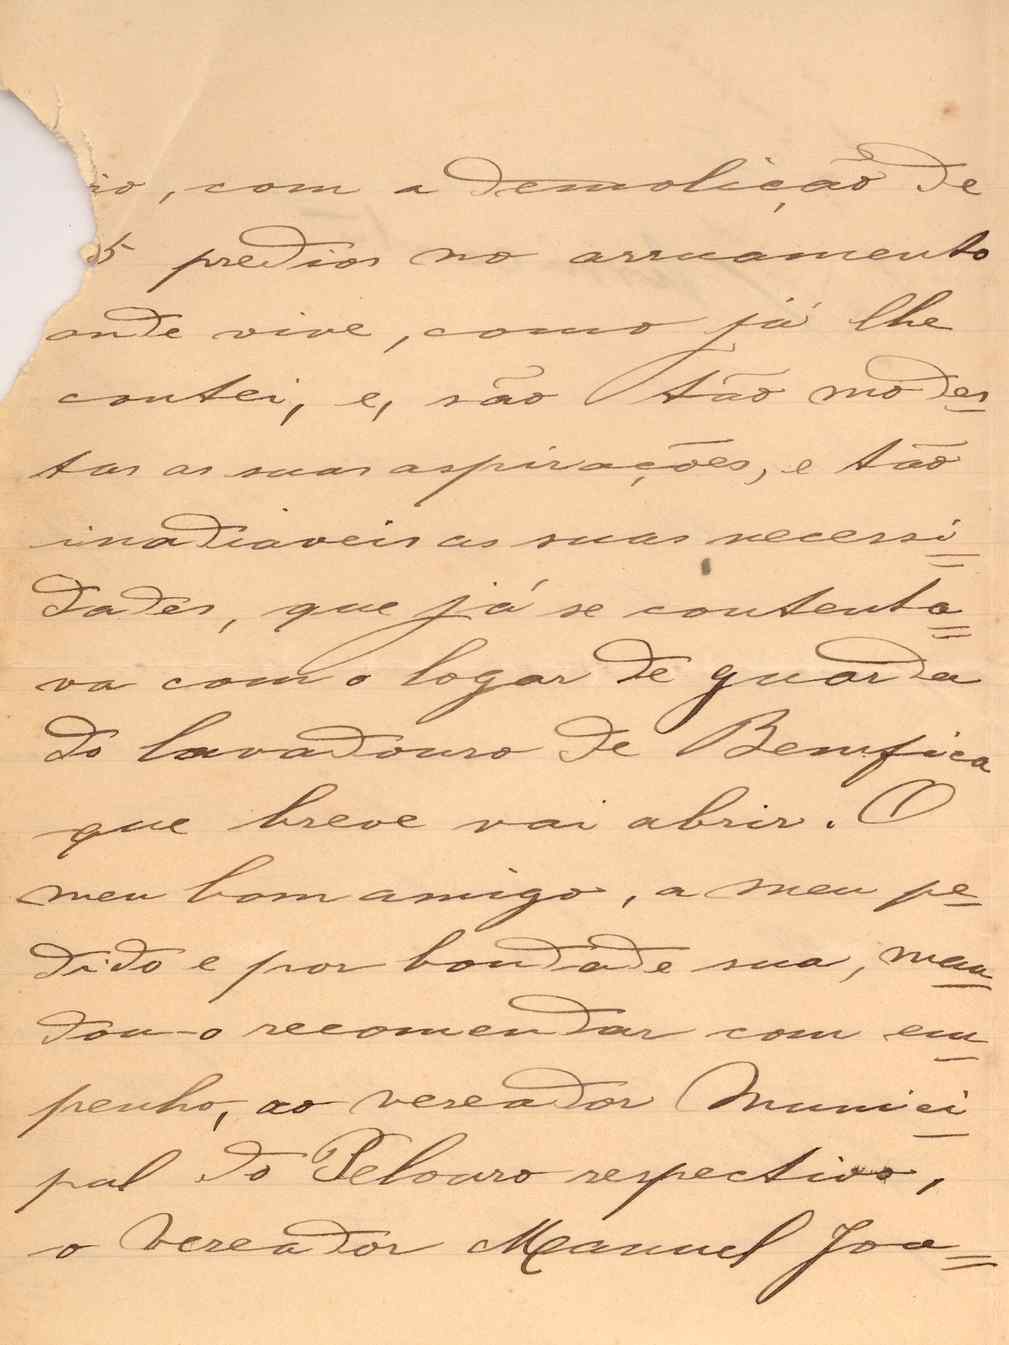 io, com a demolição de
5 predios no arruamento
onde vive, como já lhe
contei, e, são tão modes-
tas as suas aspirações, e tão
inadiaveis as suas necessi=
dades, que já se contenta=
va com o logar de guarda
do lavadouro de Bemfica
que breve vai abrir. O
meu bom amigo, a meu pe-
dido e por bondade sua, man-
dou-o recomendar com em-
penho, ao vereador Munici-
pal do Pelouro respectivo,
o Vereador Manuel Joa=